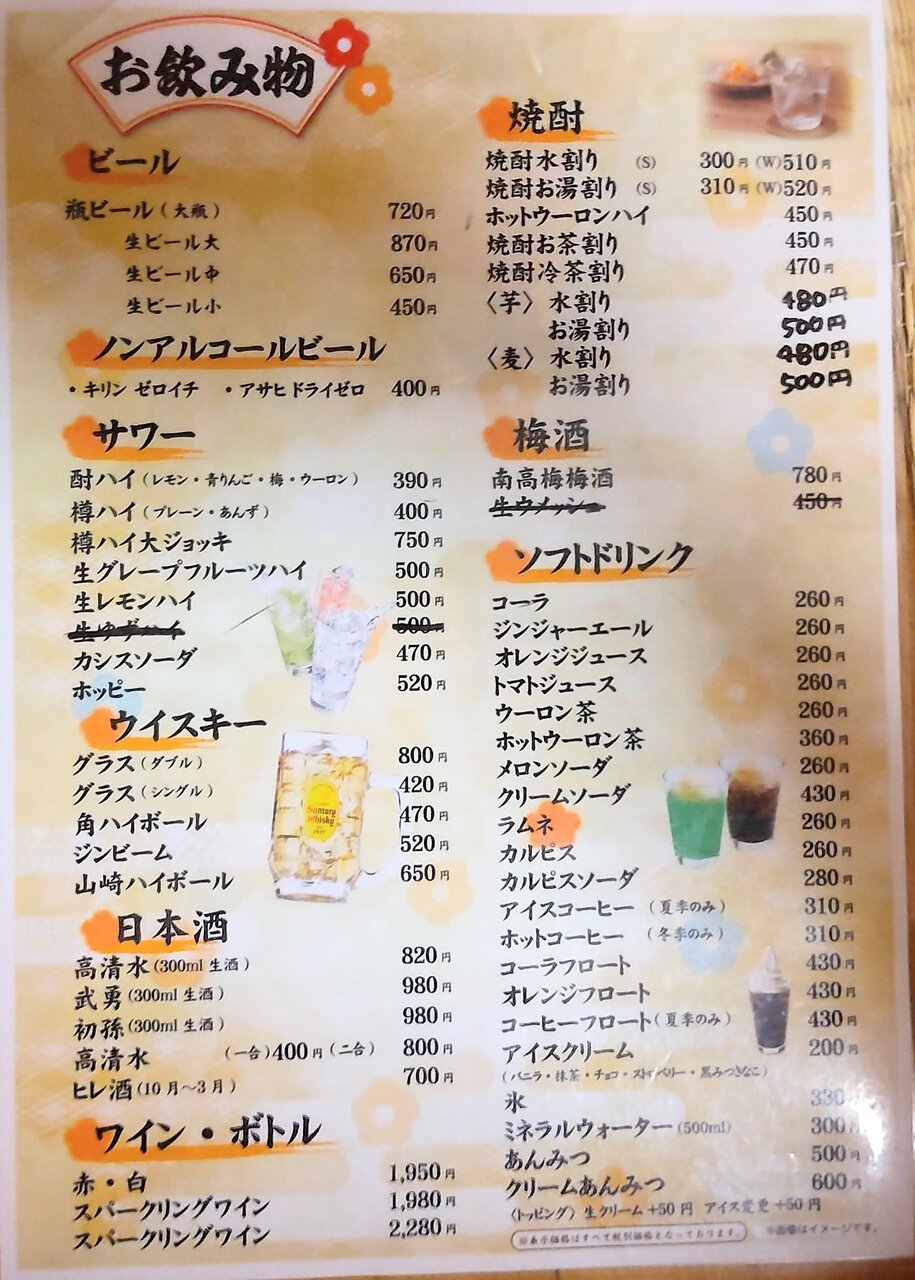 お飲み物
ビール
瓶ビール（大瓶） 720円
生ビール大 870円
生ビール中 650円
生ビール小 450円
ノンアルコールビール
・キリン ゼロイチ ・アサヒドライゼロ 400円
サワー
酎ハイ（レモン・青りんご・梅・ウーロン） 390円
樽ハイ（プレーン・あんず） 400円
樽ハイ大ジョッキ 750円
生グレープフルーツハイ 500円
生レモンハイ 500円
生ゆずハイ 500円
カシスソーダ 470円
ホッピー 520円
ウイスキー
グラス（ダブル） 800円
グラス（シングル） 420円
角ハイボール 470円
ジンビーム 520円
山崎ハイボール 650円
Suntory
Whisky
日本酒
高清水(300ml 生酒) 820円
武勇(300ml 生酒) 980円
初孫(300ml 生酒) 980円
高清水 (一合)400円(二合) 800円
ヒレ酒(10月～3月) 700円
ワイン・ボトル
赤・白 1,950円
スパークリングワイン 1,980円
スパークリングワイン 2,280円
焼酎
焼酎水割り (S) 300円 (W)510円
焼酎お湯割り (S) 310円 (W)520円
ホットウーロンハイ 450円
焼酎お茶割り 450円
焼酎冷茶割り 470円
〈芋〉水割り 480円
お湯割り 500円
〈麦〉水割り 480円
お湯割り 500円
梅酒
南高梅梅酒 780円
生ウメッシュ 450円
ソフトドリンク
コーラ 260円
ジンジャーエール 260円
オレンジジュース 260円
トマトジュース 260円
ウーロン茶 260円
ホットウーロン茶 360円
メロンソーダ 260円
クリームソーダ 430円
ラムネ 260円
カルピス 260円
カルピスソーダ 280円
アイスコーヒー （夏季のみ） 310円
ホットコーヒー （冬季のみ） 310円
コーラフロート 430円
オレンジフロート 430円
コーヒーフロート（夏季のみ） 430円
アイスクリーム 200円
（バニラ・抹茶・チョコ・ストロベリー・黒みつきなこ）
氷 330円
ミネラルウォーター(500ml) 300円
あんみつ 500円
クリームあんみつ 600円
〈トッピング〉生クリーム+50円 アイス変更+50円
※表示価格はすべて税別価格となっております。
※画像はイメージです。